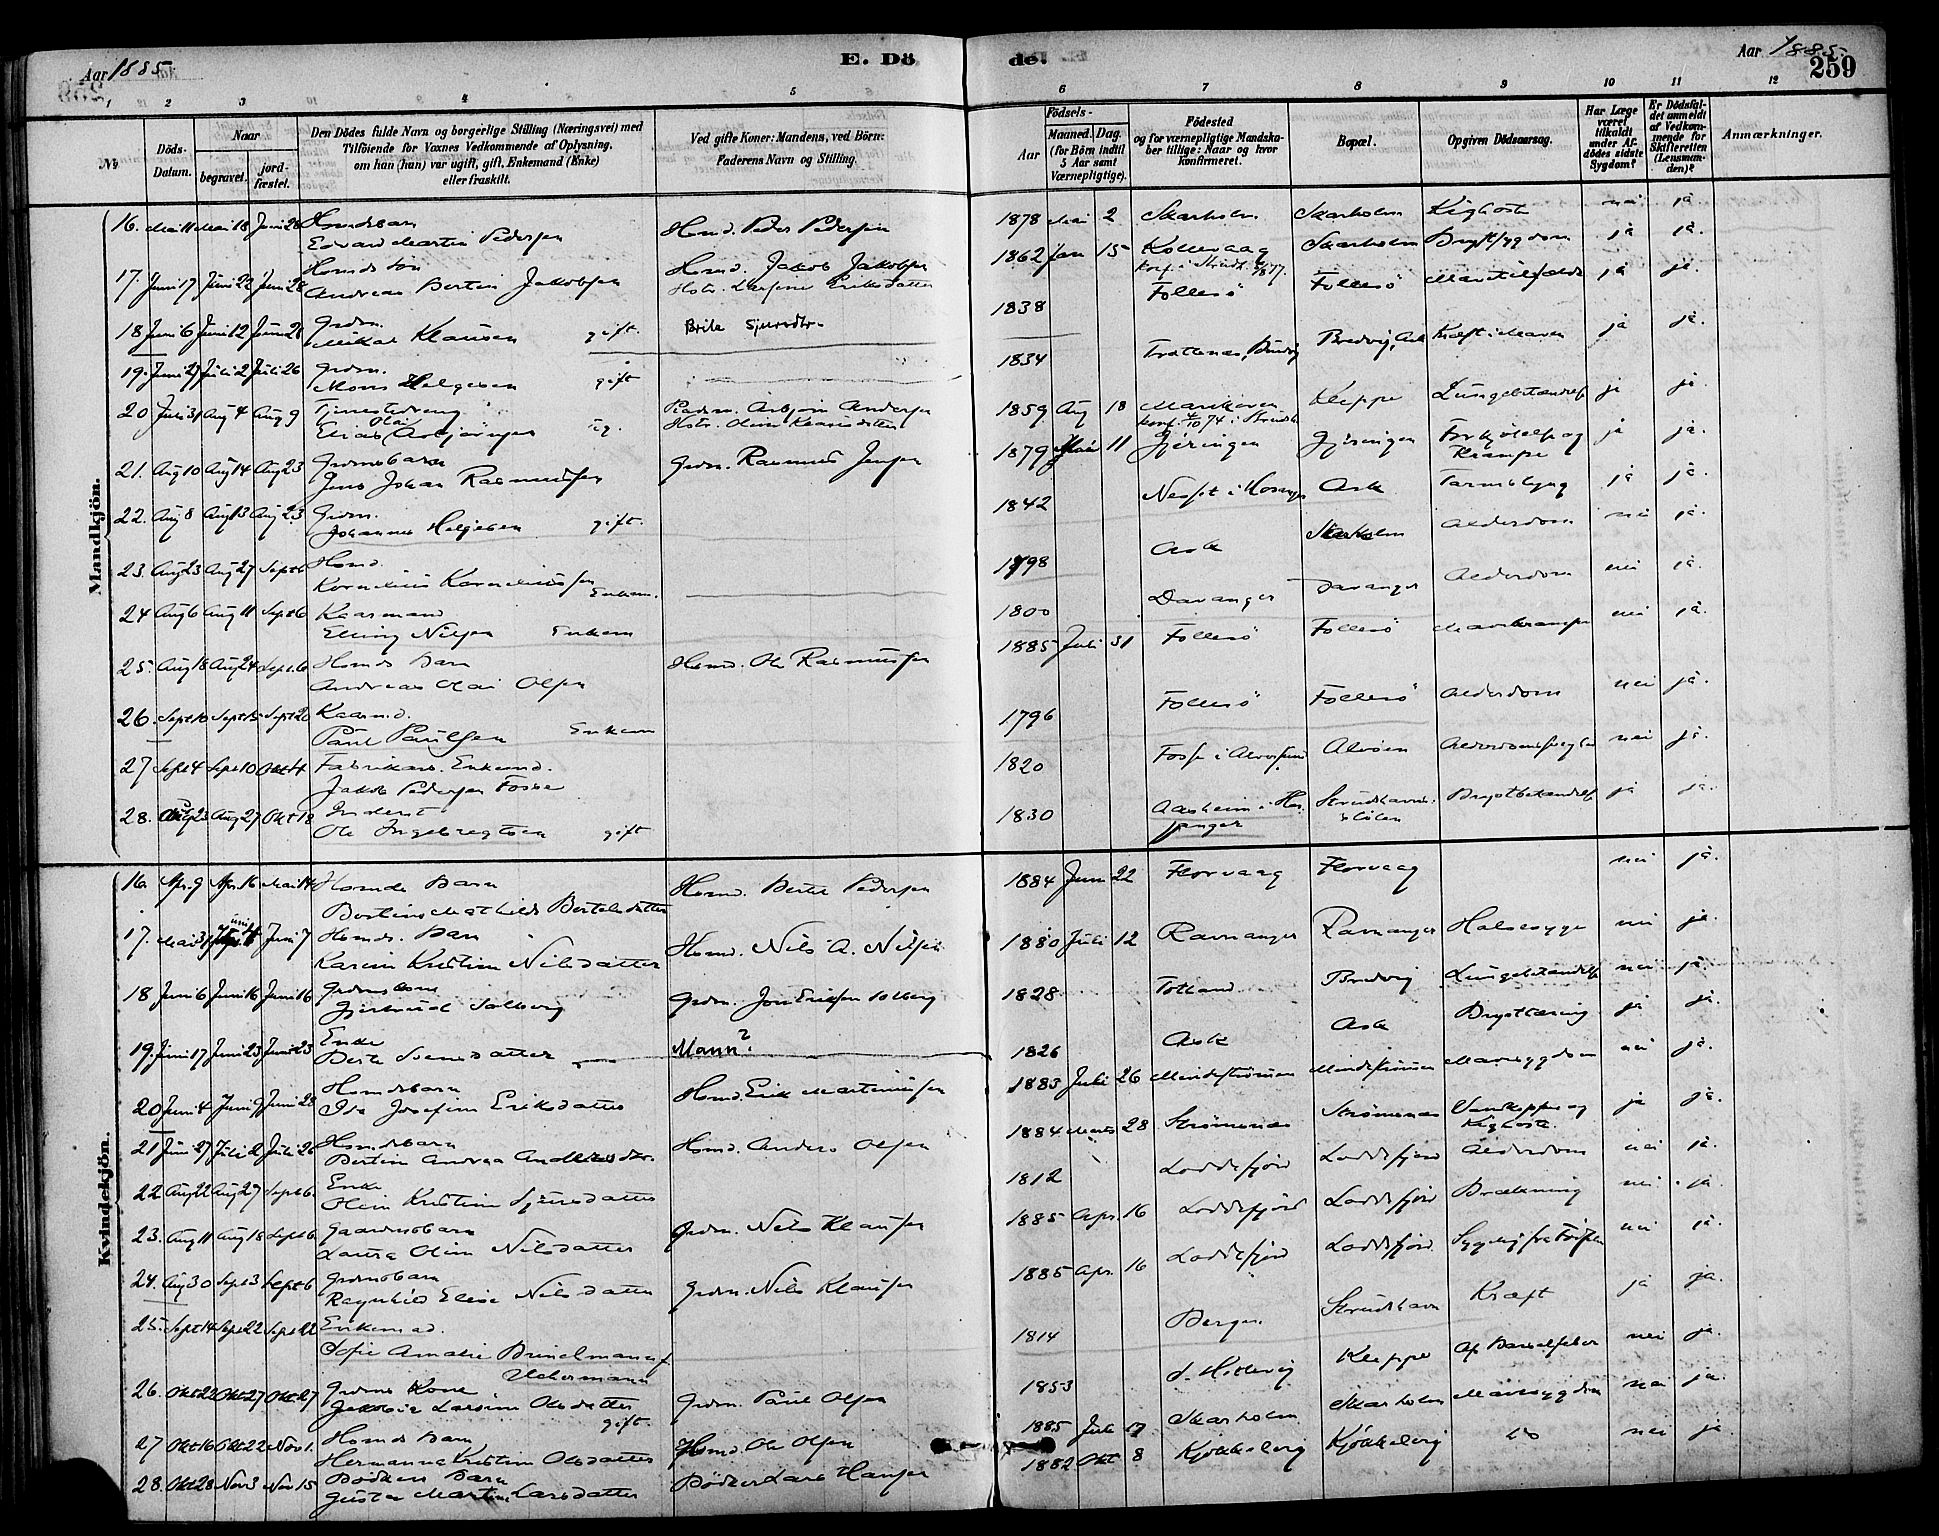 Aar 1885
E. Dö de.
Aar 1885.
259
1 2 3 4 5 6 7 8 9 10 11 12
№
Döds-Datum.
Naar
begravet.
jord-fæstet.
Den Dödes fulde Navn og borgerlige Stilling (Næringsvei) med
Tilföiende for Voxnes Vedkommende af Oplysning,
om han (hun) var ugift, gift, Enkemand (Enke)
eller fraskilt.
Ved gifte Koner: Mandens, ved Börn:
Faderens Navn og Stilling.
Födsels-
Aar
Maaned.
Dag.
(for Börn indtil
5 Aar samt
Værnepligtige).
Födested
og for værnepligtige Mandska-
ber tillige: Naar og hvor
konfirmeret.
Bopæl.
Opgiven Dödsaarsag.
Har Læge
været
tilkaldt
under Af-
dödes sidste
Sygdom?
Er Dödsfal-
det anmeldt
af Vedkom-
mende for
Skifteretten
(Lensman-
den)?
Anmærkninger.
Mandkjön.
16. Mai 11 Mai 18 Juni 28 Hmdsbarn Edvard Martin Pedersen Hsmd. Peder Pedersen 1878 Mai 2 Skarholm Skarholm Kighoste nei ja
17. Juni 17 Juni 22 Juni 28 Hsmds Søn Andreas Bertin Jakobsen Hsmd. Jakob Jakobsen 1862 Jan 15 Kollevaag Skarholm Brystsygdom ja ja.
18 Juni 6 Juni 12 Juni 28 Grdm. Mikal Klausen gift. Brite Sjursdtr. 1838 Follesö Follesö ja ja.
19. Juni 27 Juli 2 Juli 26 Grdm. Mons Helgesen gift 1834 Bredvig, Ask Kræft i Maven ja ja.
20 Juli 31 Aug 4 Aug 9 Tjenestedreng Elias Olai Asbjörnsen ug. Asbjörn Andersen 1859 Aug 18 Marikoven Kleppe Lungebetændelse ja ja.
21. Aug 10 Aug 14 Aug 23 Grdmsbarn Jens Johan Rasmussen Grdm. Rasmus Jensen 1879 Mai 11 Gjöringen Gjöringen Forkjölelse og Krampe ja ja.
22. Aug 8 Aug 13 Aug 23 Grdm. Johannes Helgesen gift. 1842 Ask ja ja.
23. Aug 23 Aug 27 Sept 6 Hsmd. Kornelius Korneliussen Enkem. 1798 Ask Skarholm Alderdom nei ja.
24 Aug 6 Aug 11 Sept 6 Kaarmand Elling Nilsen Enkem 1800 Davanger Davanger Alderdom nei ja.
25. Aug 18 Aug 24 Sept 6 Hsmds Barn Andreas Olai Olsen Hsmd. Ole Rasmussen 1885 Juli 31 Follesö Follesö Mavekrampe nei ja.
26. Sept 10 Sept 15 Sept 20 Kaarmd. Paul Paulsen Enkem 1796 Follesö Follesö Alderdom nei ja.
27 Sept 4 Sept 10 Okt 4 Fabrikarb. Enkemd. Jakob Pedersen Fosse 1820 Fosse i Alversund Alvöen nei ja.
28. 23 Aug 27 Okt 18 Inderst Ole Ingebregtsen gift 1830 Aasheim i Hosanger Brystbetændelse ja ja.
Kvindekjön.
16. Apr. 9 Apr. 16 Mai 14 Hsmds Barn Bertine Mathilde Bertelsdatter Hsmd. Bertel Pedersen 1884 Juni 22 Florvaag Florvaag nei ja.
17. Mai 31 Juni 4 Juni 7 Hsmds. Barn Karine Kristine Nilsdatter Hsmd. Nils A. Nilsen 1880 Juli 12 Ravnanger Ravnanger Halssyge nei ja.
18 Juni 6 Juni 16 Juni 16 Grdmskone Gjertrud Solberg Grdm. Jon Eriksen Solberg 1828 Totland Bredvig Lungebetændelse nei ja.
19. Juni 17 Juni 23 Juni 23 Enke Berte Svensdatter Mann? 1826 Ask Ask Brysttæring ja ja.
20 Juni 4 Juni 9 Juni 28 Hsmdsbarn Ida Josefine Eriksdatter Hsmd. Erik Martinusen 1883 Juli 26 Mindeströmmen Mindeströmmen Mavesygdom nei ja.
21 Juni 27 Juli 2 Juli 26 Hsmdsbarn Bertine Andrea Andersdtr. Hsmd. Anders Olsen 1884 Marts 28 Strömsnæs Strömsnæs Vandkopper og Kighoste ja ja.
22 Aug 22 Aug 27 Sept 6. Enke Oline Kristine Sjursdatter 1812 Loddefjord Loddefjord Alderdom nei ja.
23. Aug 11 Aug 18 Sept 6 Gaardmsbarn Laura Oline Nilsdatter Grdm. Nils Klausen 1885 Apr. 16 Loddefjord Loddefjord Brækning nei ja.
24. Aug 30 Sept 3 Sept 6 Grdmsbarn Ragnhild Elise Nilsdatter Grdm. Nils Klausen 1885 Apr. 16 Loddefjord Loddefjord Sygelig fra Födselen nei ja.
25. Sept 14 Sept 22 Sept 22 Enkemad. Sofie Amalie Brinckmann f. Uckermann 1814 Bergen Strudshavn Kræft ja ja.
26. Okt 22 Okt 27 Okt 27 Grdms Kone Jakobia Larsine Olsdatter gift. Grdm. Paul Olsen 1853 Kleppe Af Barselfeber nei ja.
27 Okt 16 Okt 22 Nov 1. Hsmds Barn Hermanna Kristine Olsdatter Hsmd. Ole Olsen 1885 Juli 17 Skarholm Skarholm Mavesygdom nei ja.
28. Okt 28 Nov 3 Nov 15 Bödkers Barn Gusta Martine Larsdatter Bödker Lars Hansen 1882 Okt 8 Kjökkelvig Kjökkelvig nei ja.